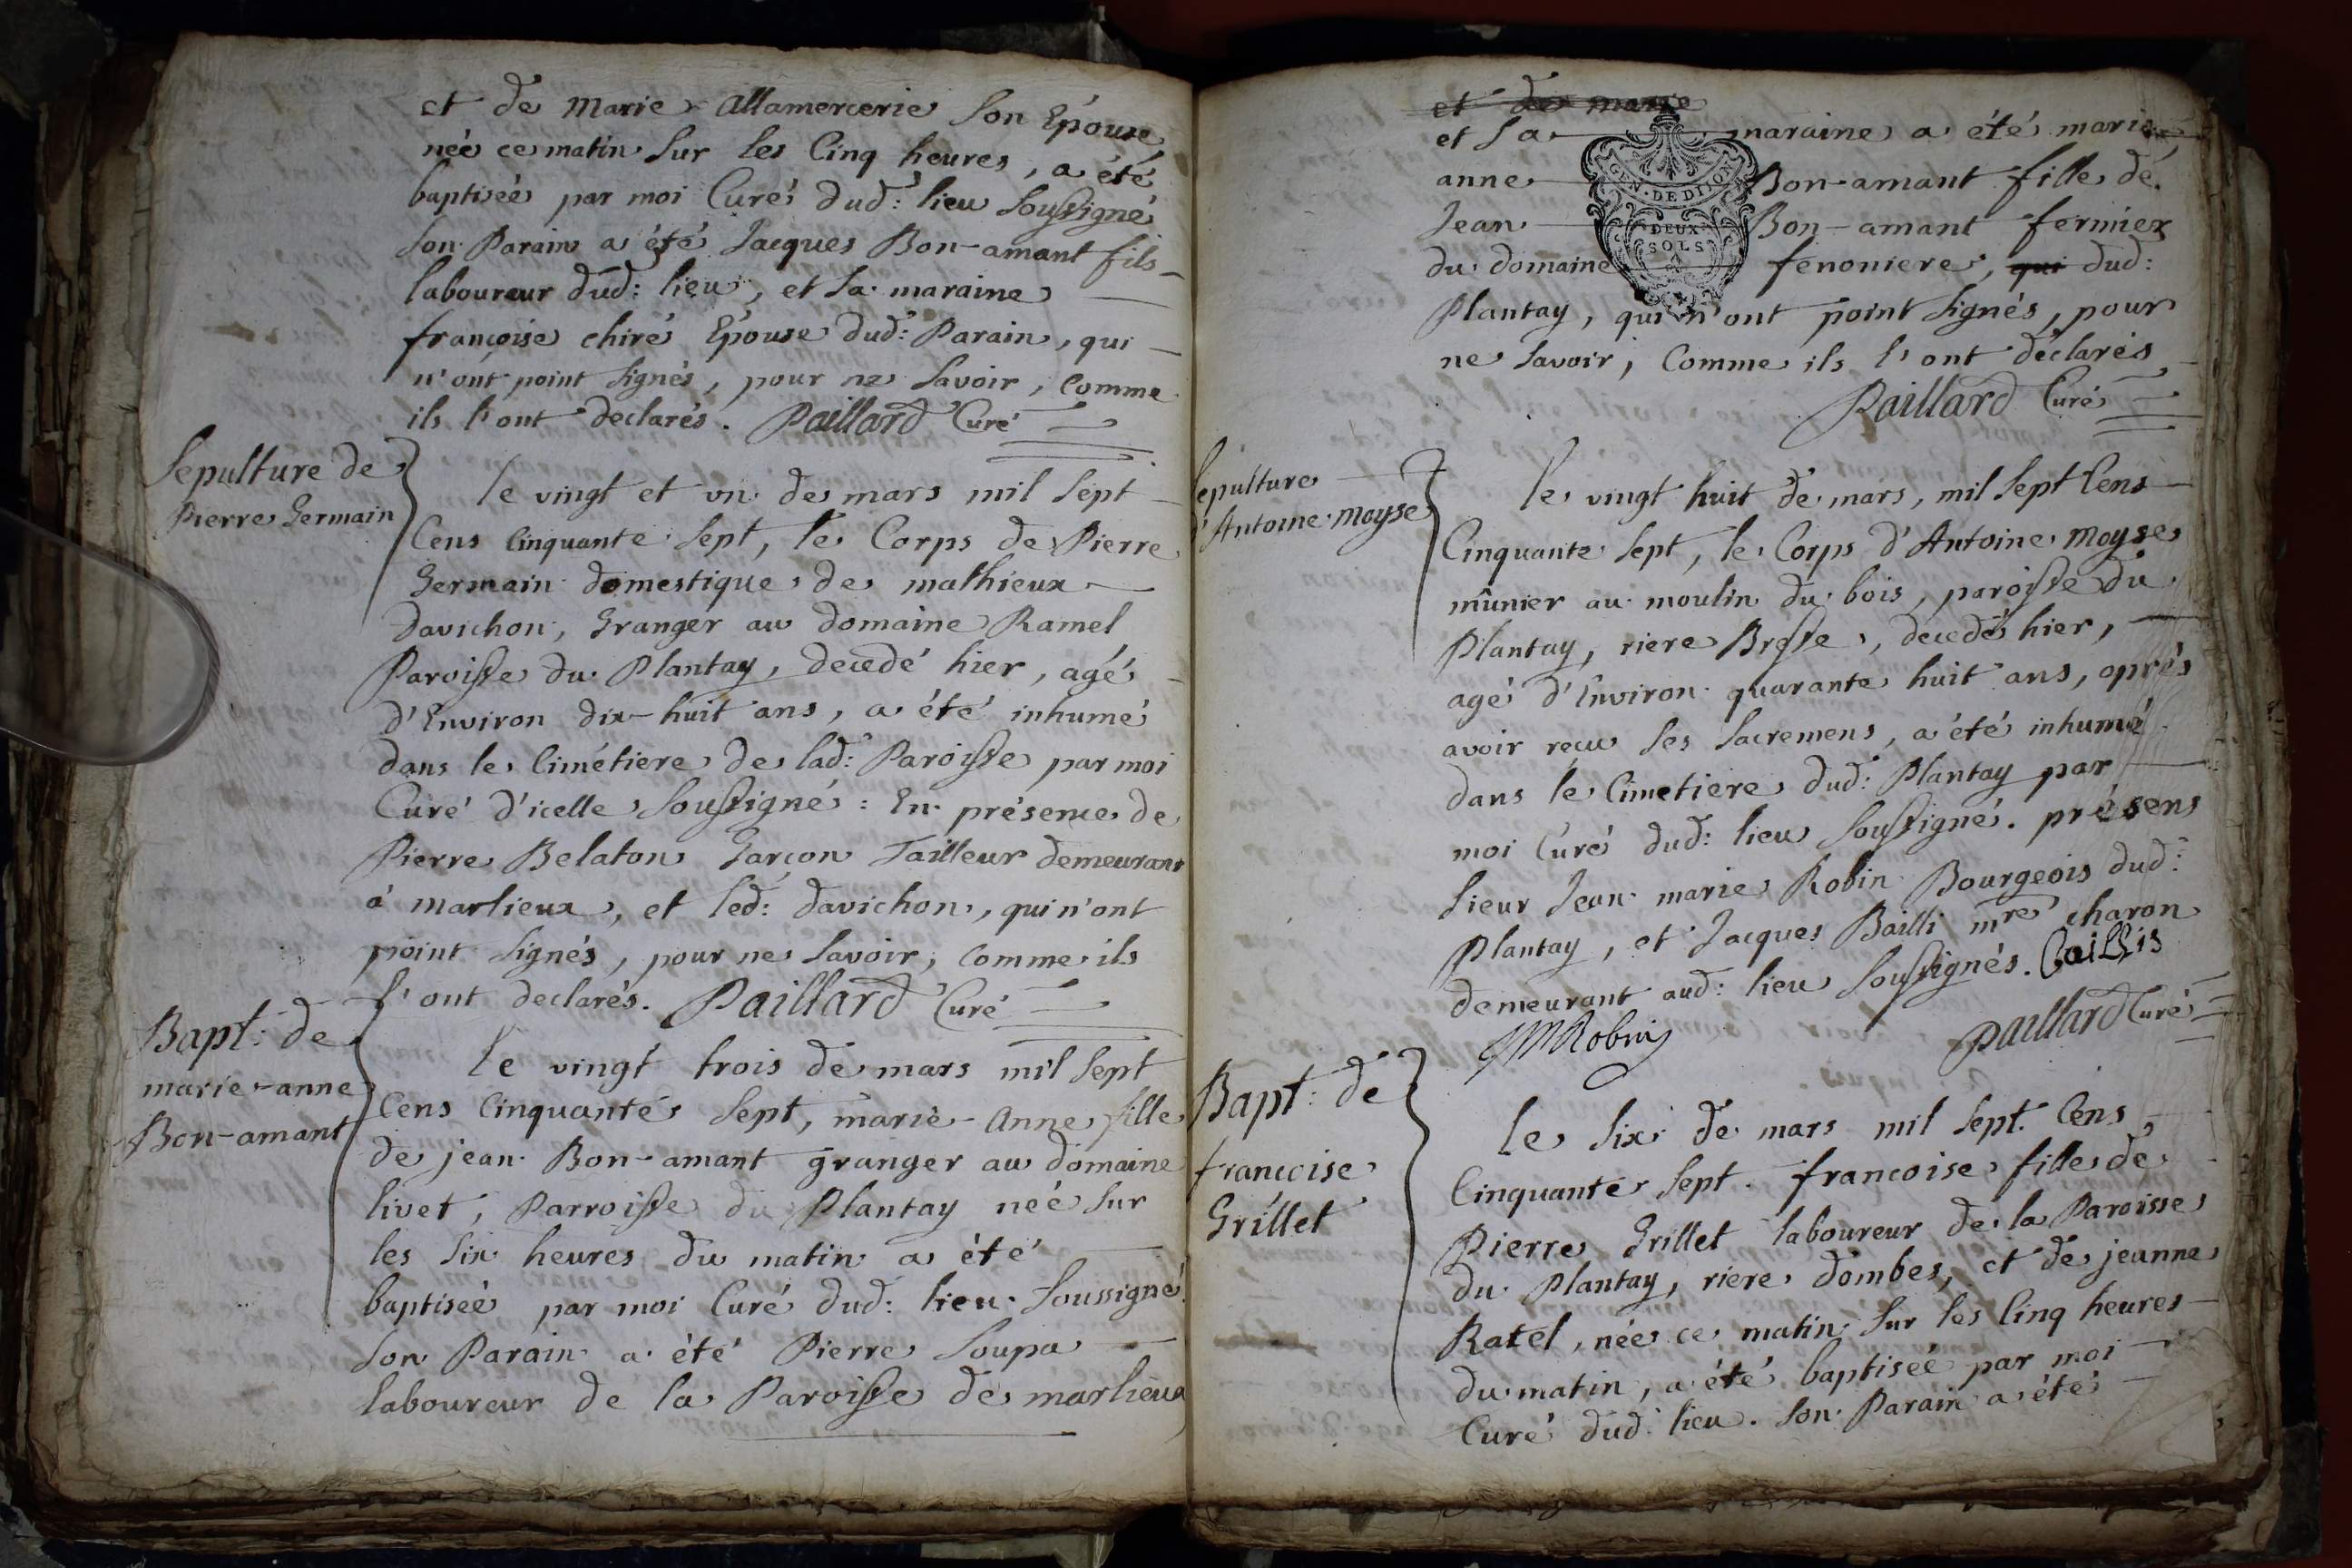 et de Marie Allamercerie son Epouse
née ce matin sur les Cinq heures, a été
baptiseé par moi Curé dud: lieu soussigné
son Parain a été Jacques Bon-amant fils
laboureur dud: lieu, et sa maraine
françoise chiré Epouse dud: Parain, qui
n'ont point signés, pour ne savoir, comme
ils l'ont declarés. Paillard Curé
Sepulture de
Pierre Germain
le vingt et un de mars mil sept
Cens Cinquante sept, le Corps de Pierre
Germain domestique de mathieux
Davichon, Granger au domaine Ramel
Paroisse du Plantay, decedé hier, agé
d'Environ dix-huit ans, a été inhumé
dans le Cimétiere de lad: Paroisse par moi
Curé d'icelle soussigné: En présence de
Pierre Belaton Garçon Tailleur demeurant
à marlieux, et led: davichon, qui n'ont
point signés, pour ne savoir, comme ils
l'ont declarés. Paillard Curé
Bapt: de
marie-anne
Bon-amant
le vingt trois de mars mil sept
Cens Cinquante sept, marie-Anne fille
de jean Bon-amant granger au domaine
livet, Parroisse du Plantay neé sur
les six heures du matin a été
baptiseé par moi Curé dud: lieu soussigné
son Parain a été Pierre Soupa
laboureur de la Paroisse de marlieux
et de marie
et sa maraine a été marie
anne Bon-amant fille de
Jean Bon-amant fermier
du domaine fenoniere, qui dud:
Plantay, qui n'ont point signés, pour
ne savoir, Comme ils l'ont déclarés
Paillard Curé
GEN. DE DIJON
DEUX
SOLS
Sepulture
d'Antoine moyse
le vingt huit de mars, mil sept Cens
Cinquante sept, le Corps d'Antoine moyse
mûnier au moulin du bois, paroisse du
Plantay, riere Bresse, decedé hier,
agé d'Environ quarante huit ans, aprés
avoir reçu ses sacremens, a été inhumé
dans le Cimetiere dud: Plantay par
moi Curé dud: lieu soussigné. présens
sieur Jean marie Robin Bourgeois dud:
Plantay, et Jacques Bailli mre charon
demeurant aud: lieu soussignés.
JM Robin
Paillard Curé
Bapt: de
francoise
Grillet
le six de mars mil sept Cens
Cinquante sept. francoise fille de
Pierre Grillet laboureur de la Paroisse
du Plantay, riere dombes, et de jeanne
Ratel, née ce matin sur les Cinq heures
du matin, a été baptiseé par moi
Curé dud: lieu. son Parain a été